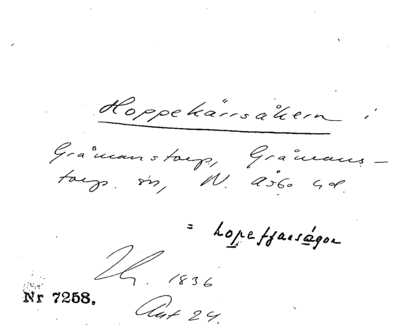 Hoppekärrsåkern i
Gråmanstorp, Gråmans-
torp sn, N. Åsbo hd.
= hopetjarsågor
1836
Nr 7258. Ant 24.